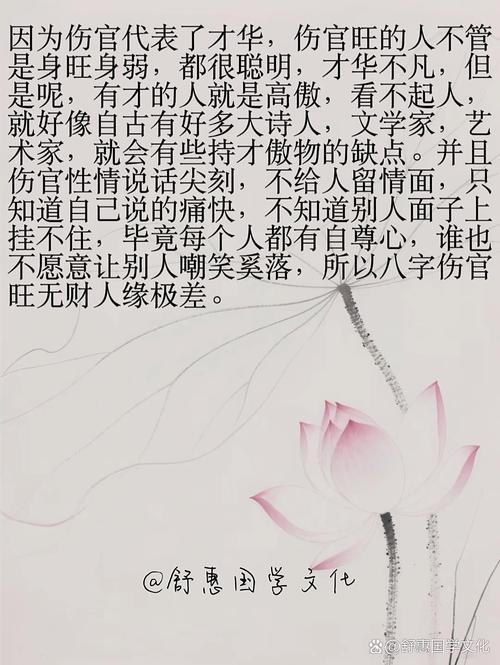 因为伤官代表了才华，伤官旺的人不管
是身旺身弱，都很聪明，才华不凡，但
是呢，有才的人就是高傲，看不起人，
就好像自古有好多大诗人，文学家，艺
术家，就会有些持才傲物的缺点。并且
伤官性情说话尖刻，不给人留情面，只
知道自己说的痛快，不知道别人面子上
挂不住，毕竟每个人都有自尊心，谁也
不愿意让别人嘲笑奚落，所以八字伤官
旺无财人缘极差。
@舒惠国学文化
@舒惠国学文化